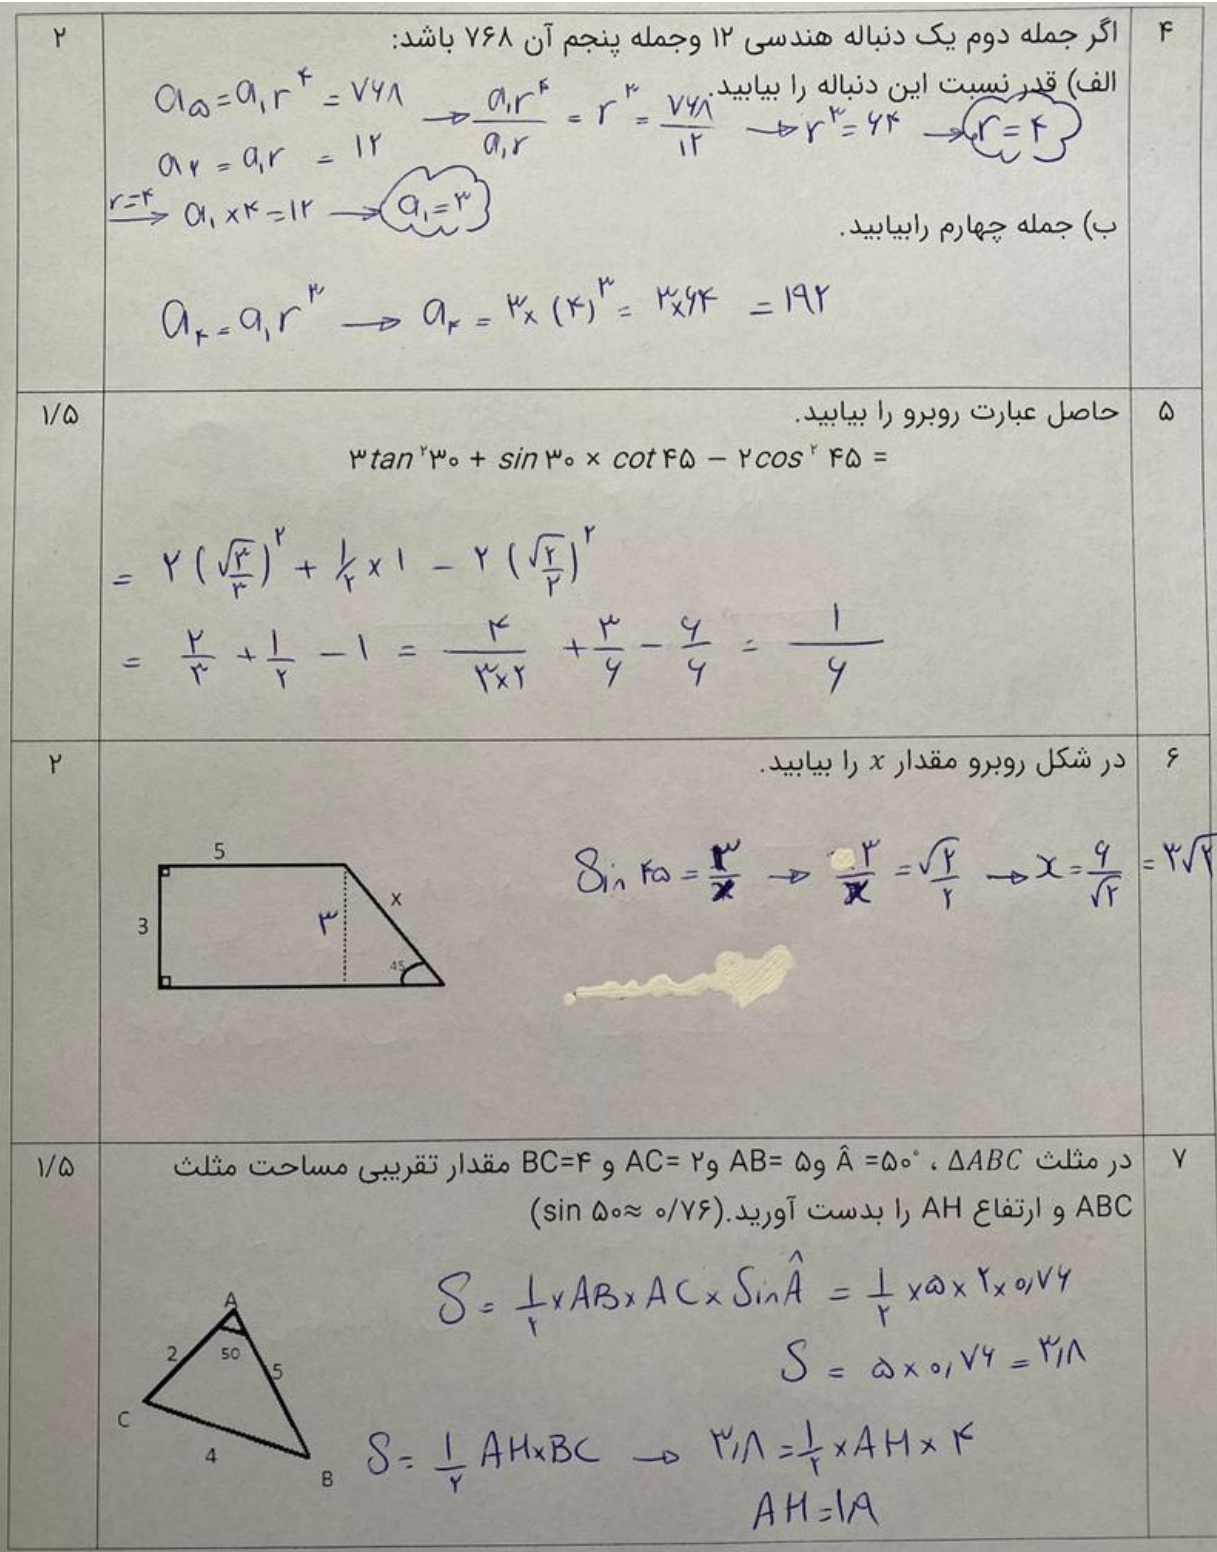 ۴ اگر جمله دوم یک دنباله هندسی ۱۲ وجمله پنجم آن ۷۶۸ باشد: ۲
الف) قدر نسبت این دنباله را بیابید.
a۵ = a۱r^۴ = ۷۶۸ → a۱r^۴/a۱r = r^۳ = ۷۶۸/۱۲ → r^۳ = ۶۴ → r = ۴
a۲ = a۱r = ۱۲
r=۴ → a۱ × ۴ = ۱۲ → a۱ = ۳
ب) جمله چهارم رابیابید.
a۴ = a۱r^۳ → a۴ = ۳ × (۴)^۳ = ۳×۶۴ = ۱۹۲
۵ حاصل عبارت روبرو را بیابید. ۱/۵
۳tan^۲ ۳۰ + sin ۳۰ × cot ۴۵ − ۲cos^۲ ۴۵ =
= ۲(√۳/۳)^۲ + ۱/۲ × ۱ − ۲(√۲/۲)^۲
= ۲/۳ + ۱/۲ − ۱ = ۴/۳×۲ + ۳/۶ − ۶/۶ = ۱/۶
۶ در شکل روبرو مقدار x را بیابید. ۲
Sin ۴۵ = ۳/x → ۳/x = √۲/۲ → x = ۶/√۲ = ۳√۲
5
3
۳
x
45
۷ در مثلث ΔABC ، Â =۵۰° و AB= ۵ و AC= ۲ و BC=۴ مقدار تقریبی مساحت مثلث ۱/۵
ABC و ارتفاع AH را بدست آورید.(sin ۵۰≈ ۰/۷۶)
S = ۱/۲ × AB × AC × Sin Â = ۱/۲ × ۵ × ۲ × ۰,۷۶
S = ۵ × ۰,۷۶ = ۳,۸
A
2
50
5
C
4
B
S = ۱/۲ AH×BC → ۳,۸ = ۱/۲ × AH × ۴
AH = ۱,۹